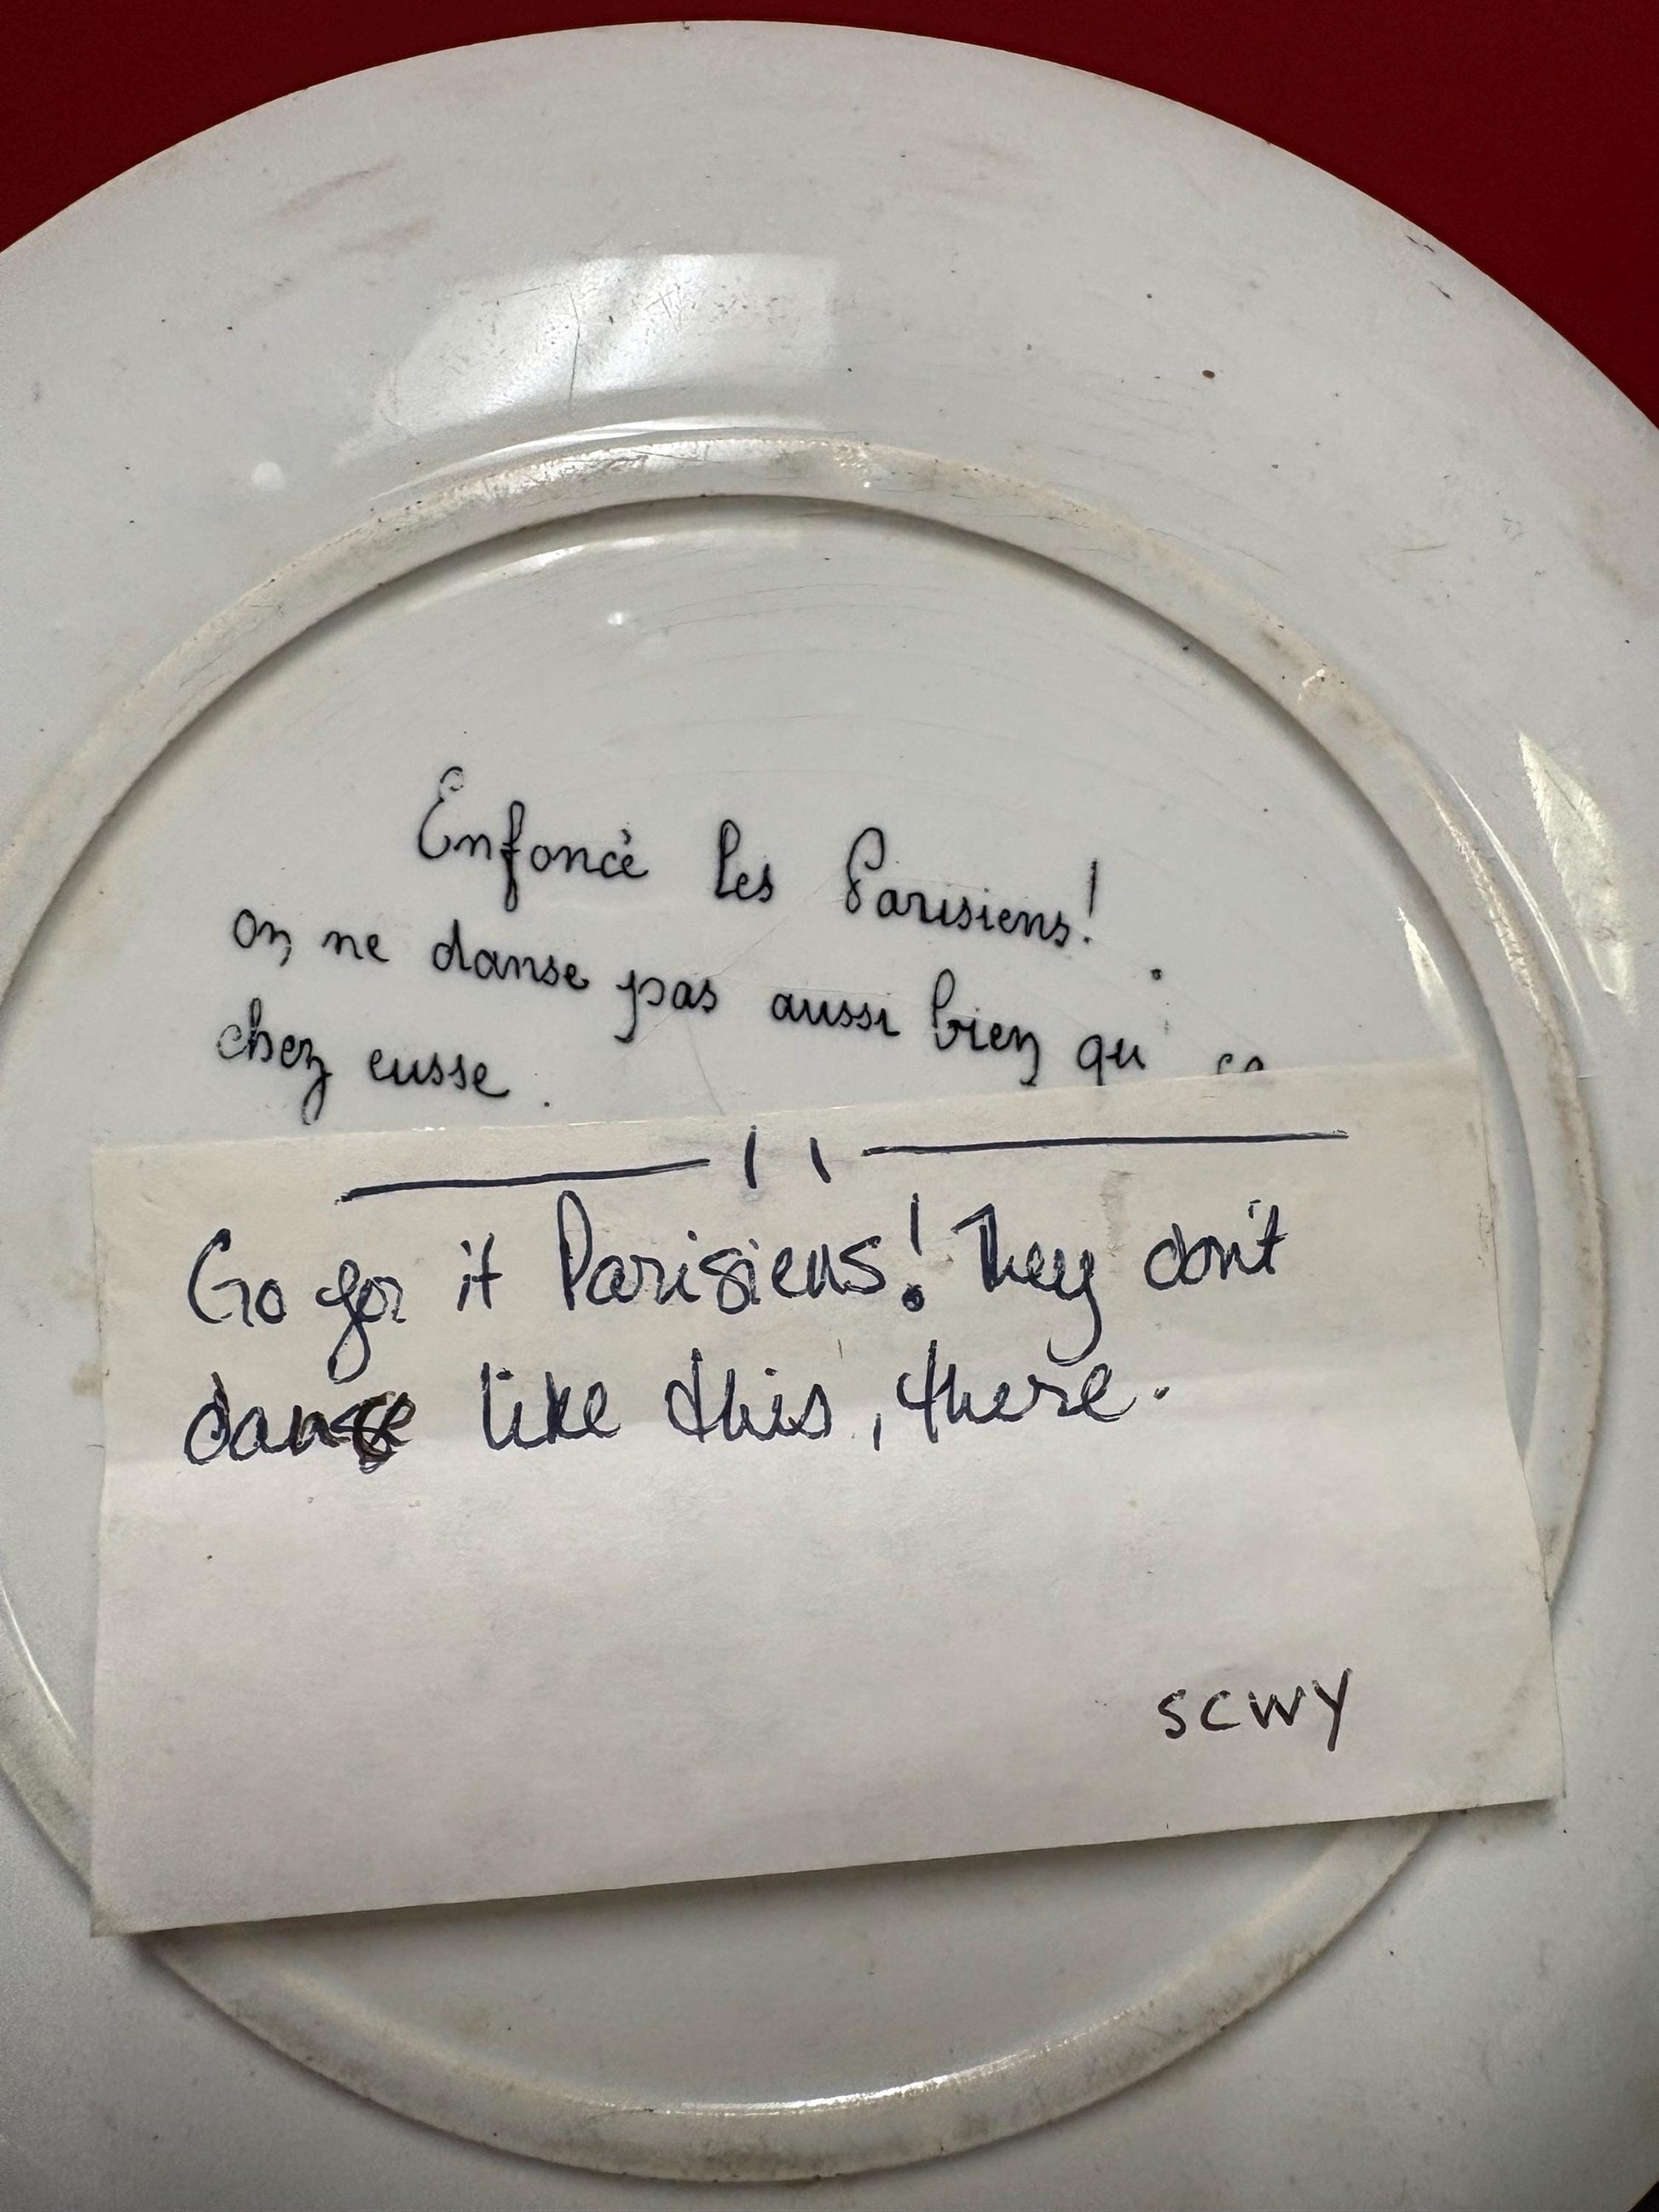 Enfoncé les Parisiens!
on ne danse pas aussi bien qu' ça
chez eusse.
Go for it Parisiens! They don't
danse like this, there.
SCWY